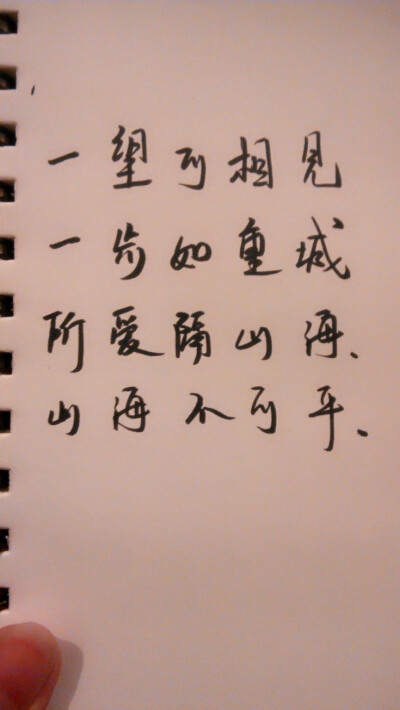 一望可相見
一步如重城
所爱隔山海、
山海不可平、